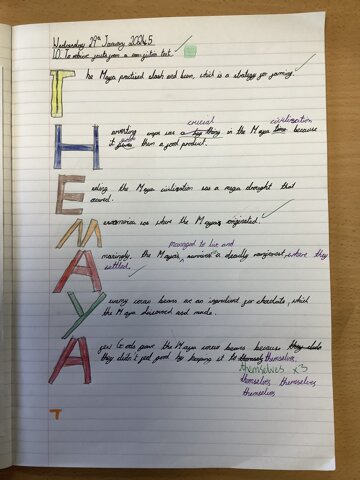 Wednesday 29th January 20245
LO: To retrieve facts from a non-fiction text.
The Maya practised slash and burn, which is a strategy for farming.
crucial civilization
Harvesting crops was a big thing in the Maya time because
it gives them a good product.
Ending the Maya civilization was a mega drought that
occured.
Mesoamerica was where the Mayans originated.
managed to live and
Amazingly, the Maya's survive a deadly rainforest, where they
settled.
Yummy cocoa beans are an ingredient for chocolate, which
the Maya discovered and made.
A few Gods gave the Maya cocoa beans because they didn
they didn't feel good by keeping it to themsels themselves.
themselves x3
themselves themselves
themselves